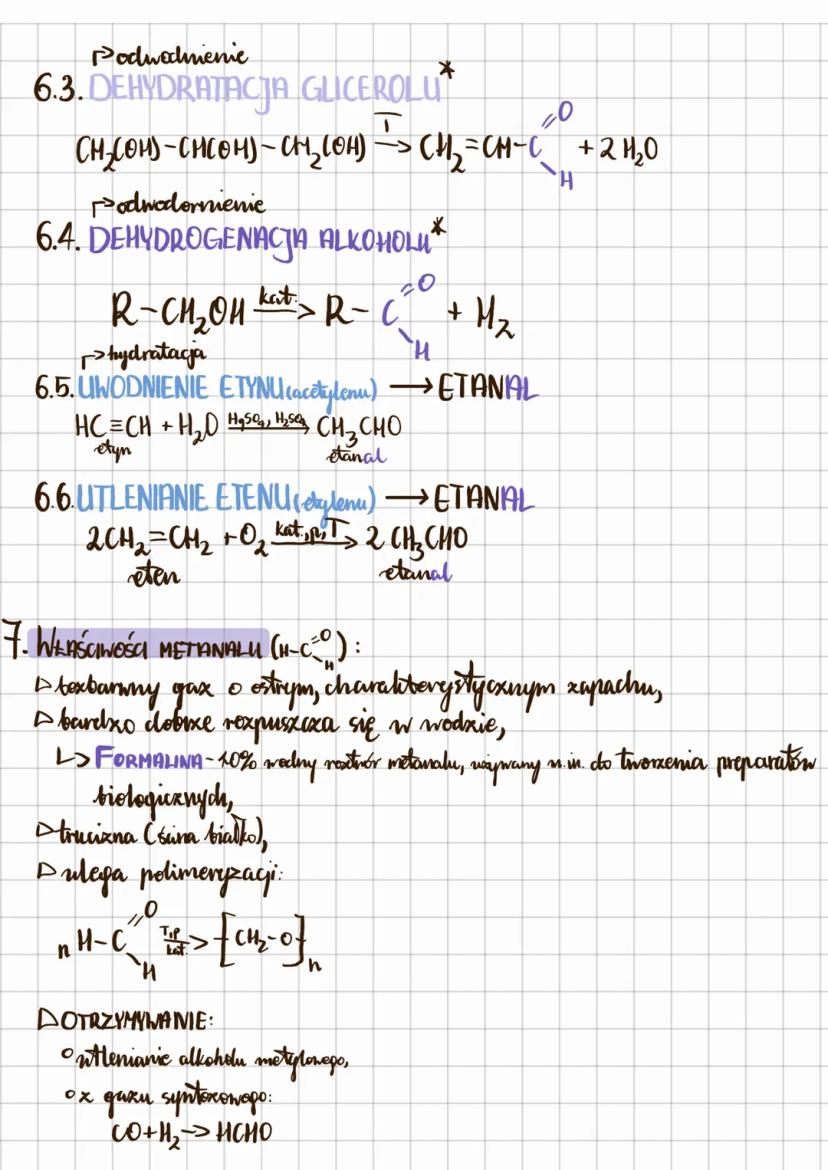 ↱odwodnienie
6.3. DEHYDRATACJA GLICEROLU*
CH₂(OH)-CH(OH)-CH₂(OH) T→ CH₂=CH-C=O + 2 H₂O
H
↱odwodornienie
6.4. DEHYDROGENACJA ALKOHOLU*
R-CH₂OH kat.→ R-C=O + H₂
H
↱hydratacja
6.5. UWODNIENIE ETYNU (acetylenu) → ETANAL
HC≡CH + H₂O HgSO₄, H₂SO₄→ CH₃CHO
etyn etanal
6.6. UTLENIANIE ETENU (etylenu) → ETANAL
2CH₂=CH₂ + O₂ kat., p, T→ 2 CH₃CHO
eten etanal
7. WŁAŚCIWOŚCI METANALU (H-C=O) :
H
▷ bezbarwny gaz o ostrym, charakterystycznym zapachu,
▷ bardzo dobrze rozpuszcza się w wodzie,
↳ FORMALINA - 40% wodny roztwór metanalu, używany m.in. do tworzenia preparatów
biologicznych,
▷ trucizna (ścina białko),
▷ ulega polimeryzacji:
n H-C=O T,p kat.→ [CH₂-O]n
H
▷ OTRZYMYWANIE:
○ utlenianie alkoholu metylowego,
○ z gazu syntezowego:
CO + H₂ → HCHO